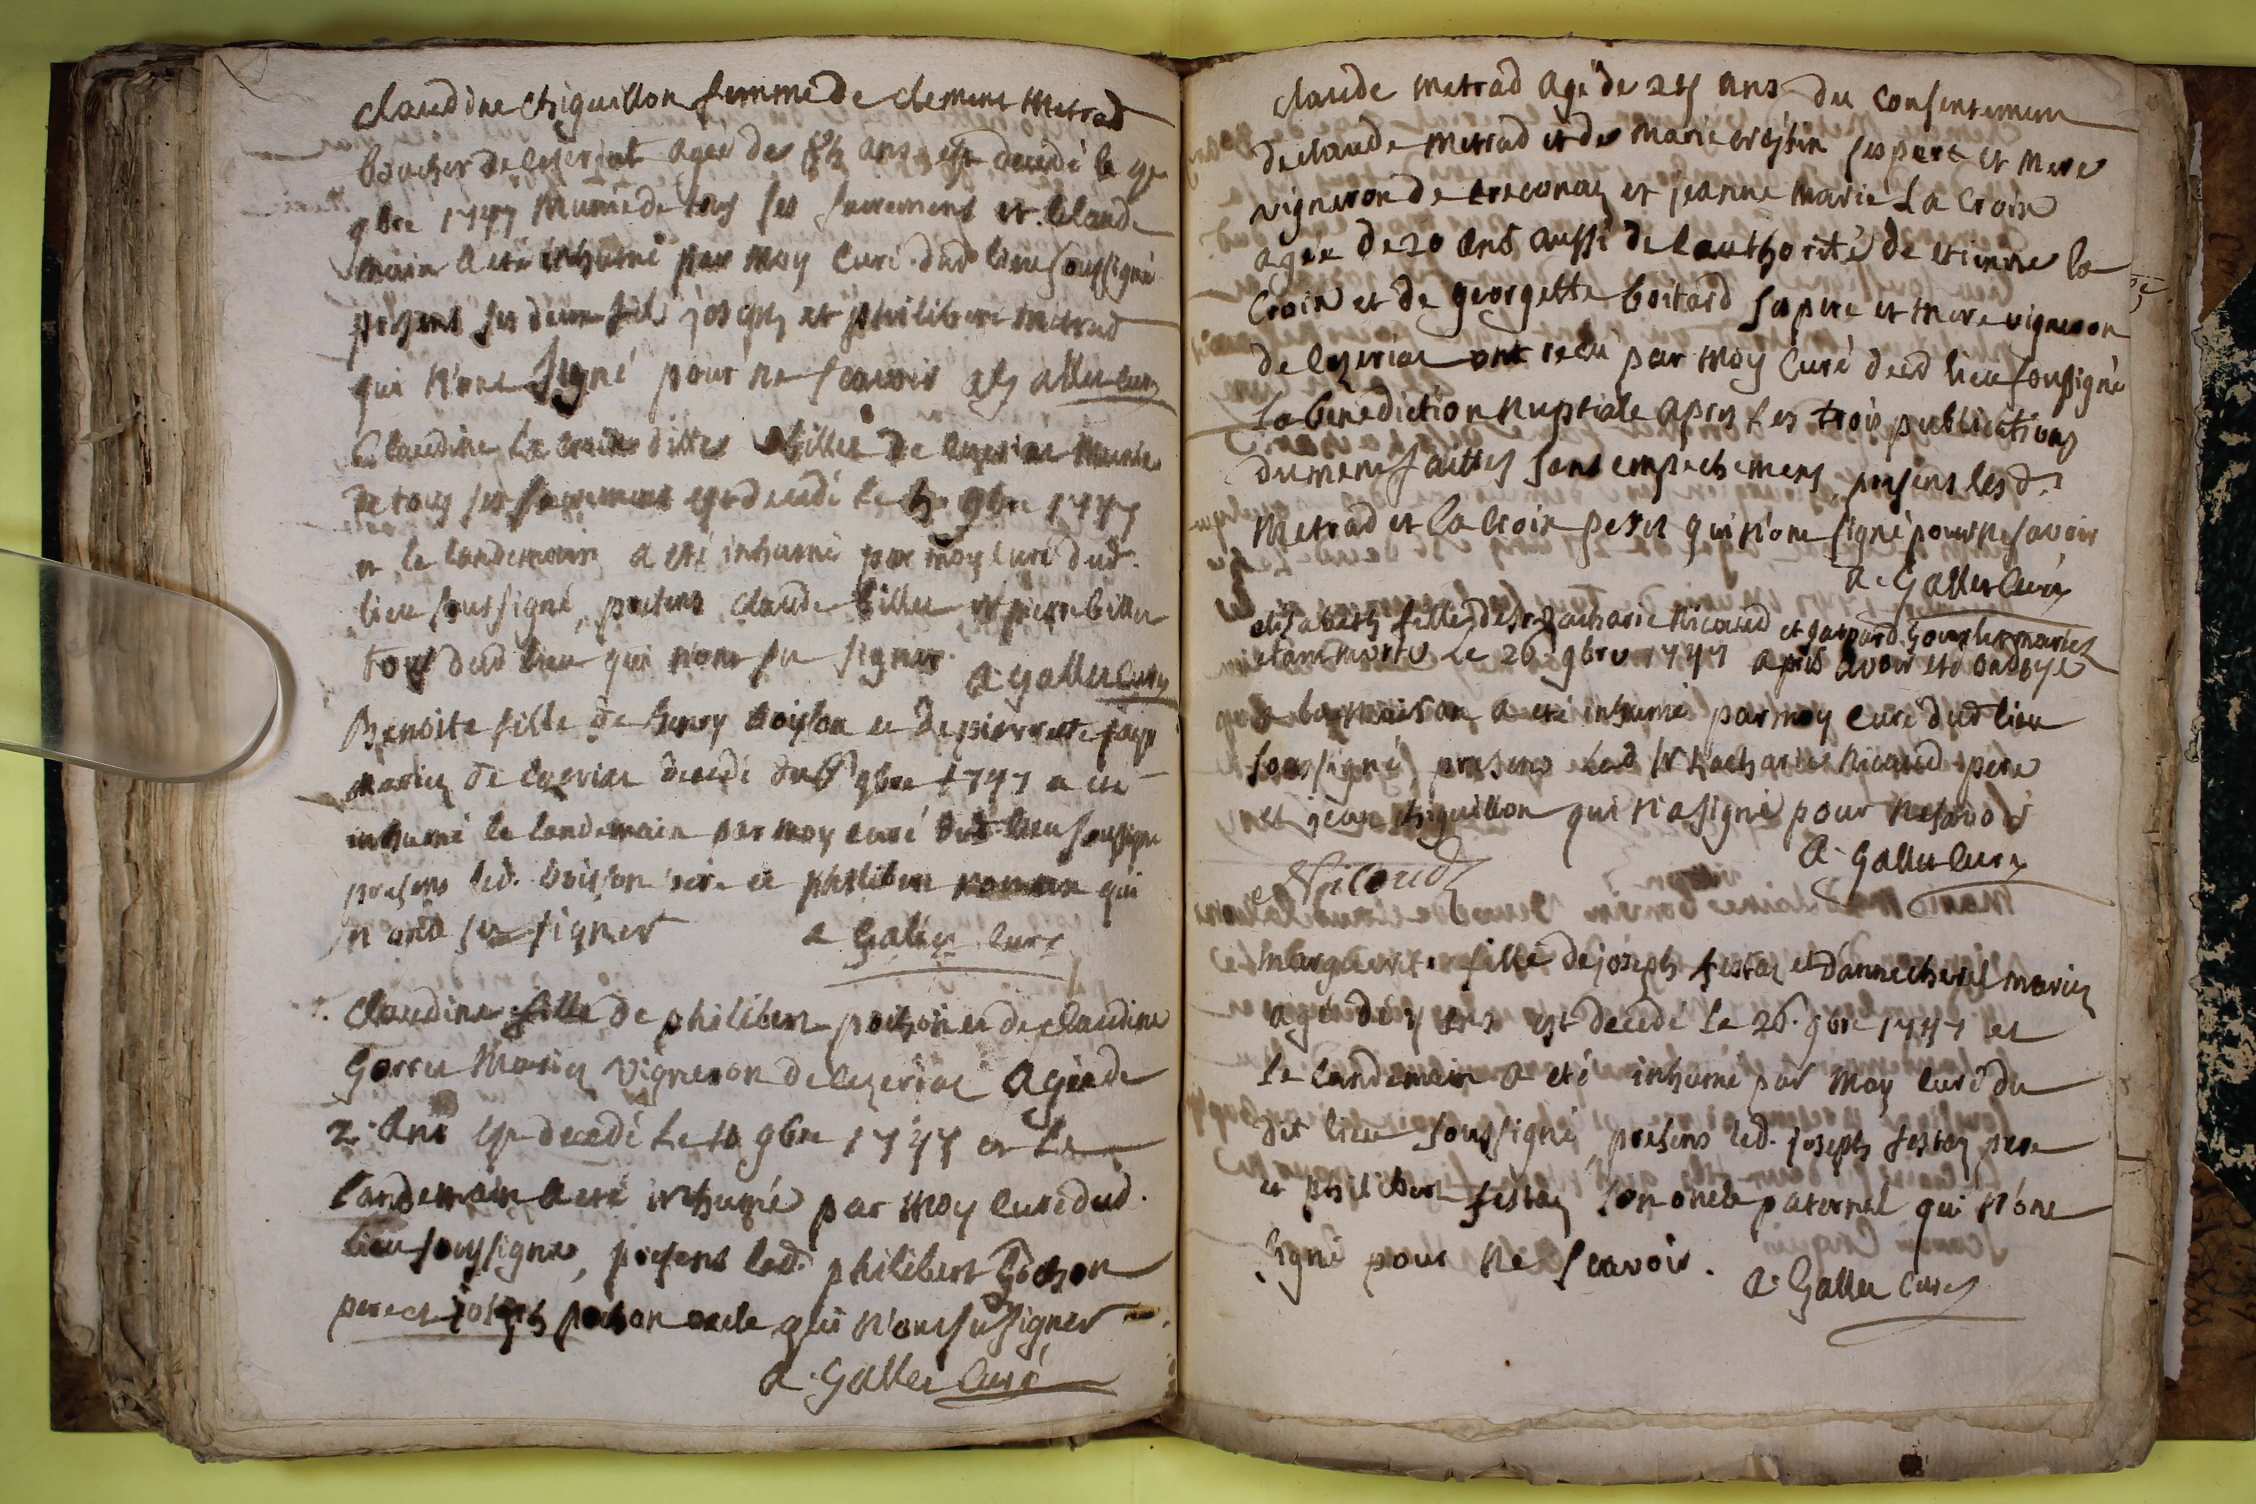 claudine chiguillon femme de clement metrad
boucher de ceyzeriat agée des ans est decedé le 9e
9bre 1747 munie de tous ses sacremens et le lande
main a eté inhumé par moy curé dud lieu soussigné
presens ses deux fils joseph et philibert metrad
qui n'ont signé pour ne scavoir a galleu curé
Claudine La croix dittes billet de munie
de tous ses sacremens est decedé le 9bre 1747
et le landemain a eté inhumé par moy curé dud.
lieu soussigné, presens claude billet et pierre billet
tous dud lieu qui n'ont su signer. a galleu curé
Benoite fille de henry boisson et de pierrette
mariez de decedé du 9bre 1747 a eté
inhumé le landemain par moy curé dud lieu soussigné
presens led. boisson pere et philibert qui
n'ont su signer a Galleu curé
Claudine fille de philibert pochon et de claudine
Gorret Mariez vigneron de ceyzeriat agée de
2. ans est decedé Le 10 9bre 1747 et Le
landemain a eté inhumé par moy curé dud.
lieu soussigné, presens led. philibert Pochon
pere et joseph pochon oncle qui n'ont su signer
a. Galleu curé
claude metrad agé de 24 ans du consentement
de claude metrad et de marie ses pere et mere
vigneron de treconaz et jeanne marie La Croix
agée de 20 ans aussi de l'authorité de etienne la
Croix et de georgette boitard ses pere et mere vigneron
de ont recu par moy curé dud lieu soussigné
La benediction nuptiale apres les trois publications
dument faittes sans empechement, presens les d.
Metrad et la croix peres qui n'ont signé pour ne savoir
a. Galleu curé
elisabeth fille de sr Zacharie Nicaud et mariez
etant morte Le 26. 9bre 1747 apres avoir eté ondoyé
a la maison a eté inhumé par moy curé dud lieu
soussigné, presens led sr Zacharie Nicaud pere
et jean chiguillon qui n'a signé pour ne savoir
a. Galleu curé
Nicaud
Marguerite fille de joseph festaz et d'anne mariez
agé de ans est decedé Le 26. 9bre 1747 et
Le landemain a eté inhumé par moy curé du
dit lieu soussigné, presens led. joseph festaz pere
et philibert festaz son oncle paternel qui n'ont
signé pour ne scavoir. a. Galleu curé